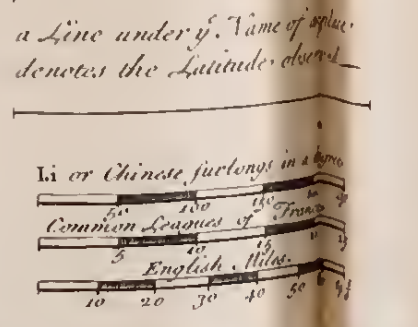 a Line under yͤ. Name of a place
denotes the Latitude observed
Li or Chinese furlongs in a Degree
50 100 150
Common Leagues of France
5 10 15
English Miles.
10 20 30 40 50